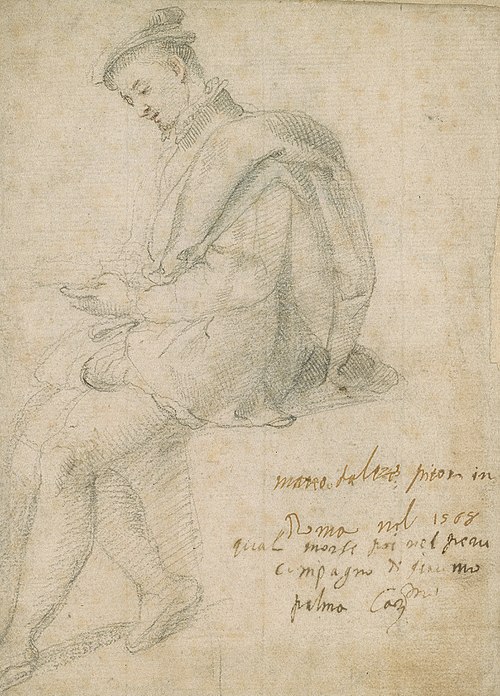 mateo da leze, pitor in
Roma nel 1568
qual morse poi nel peru
compagno di giacomo
palma